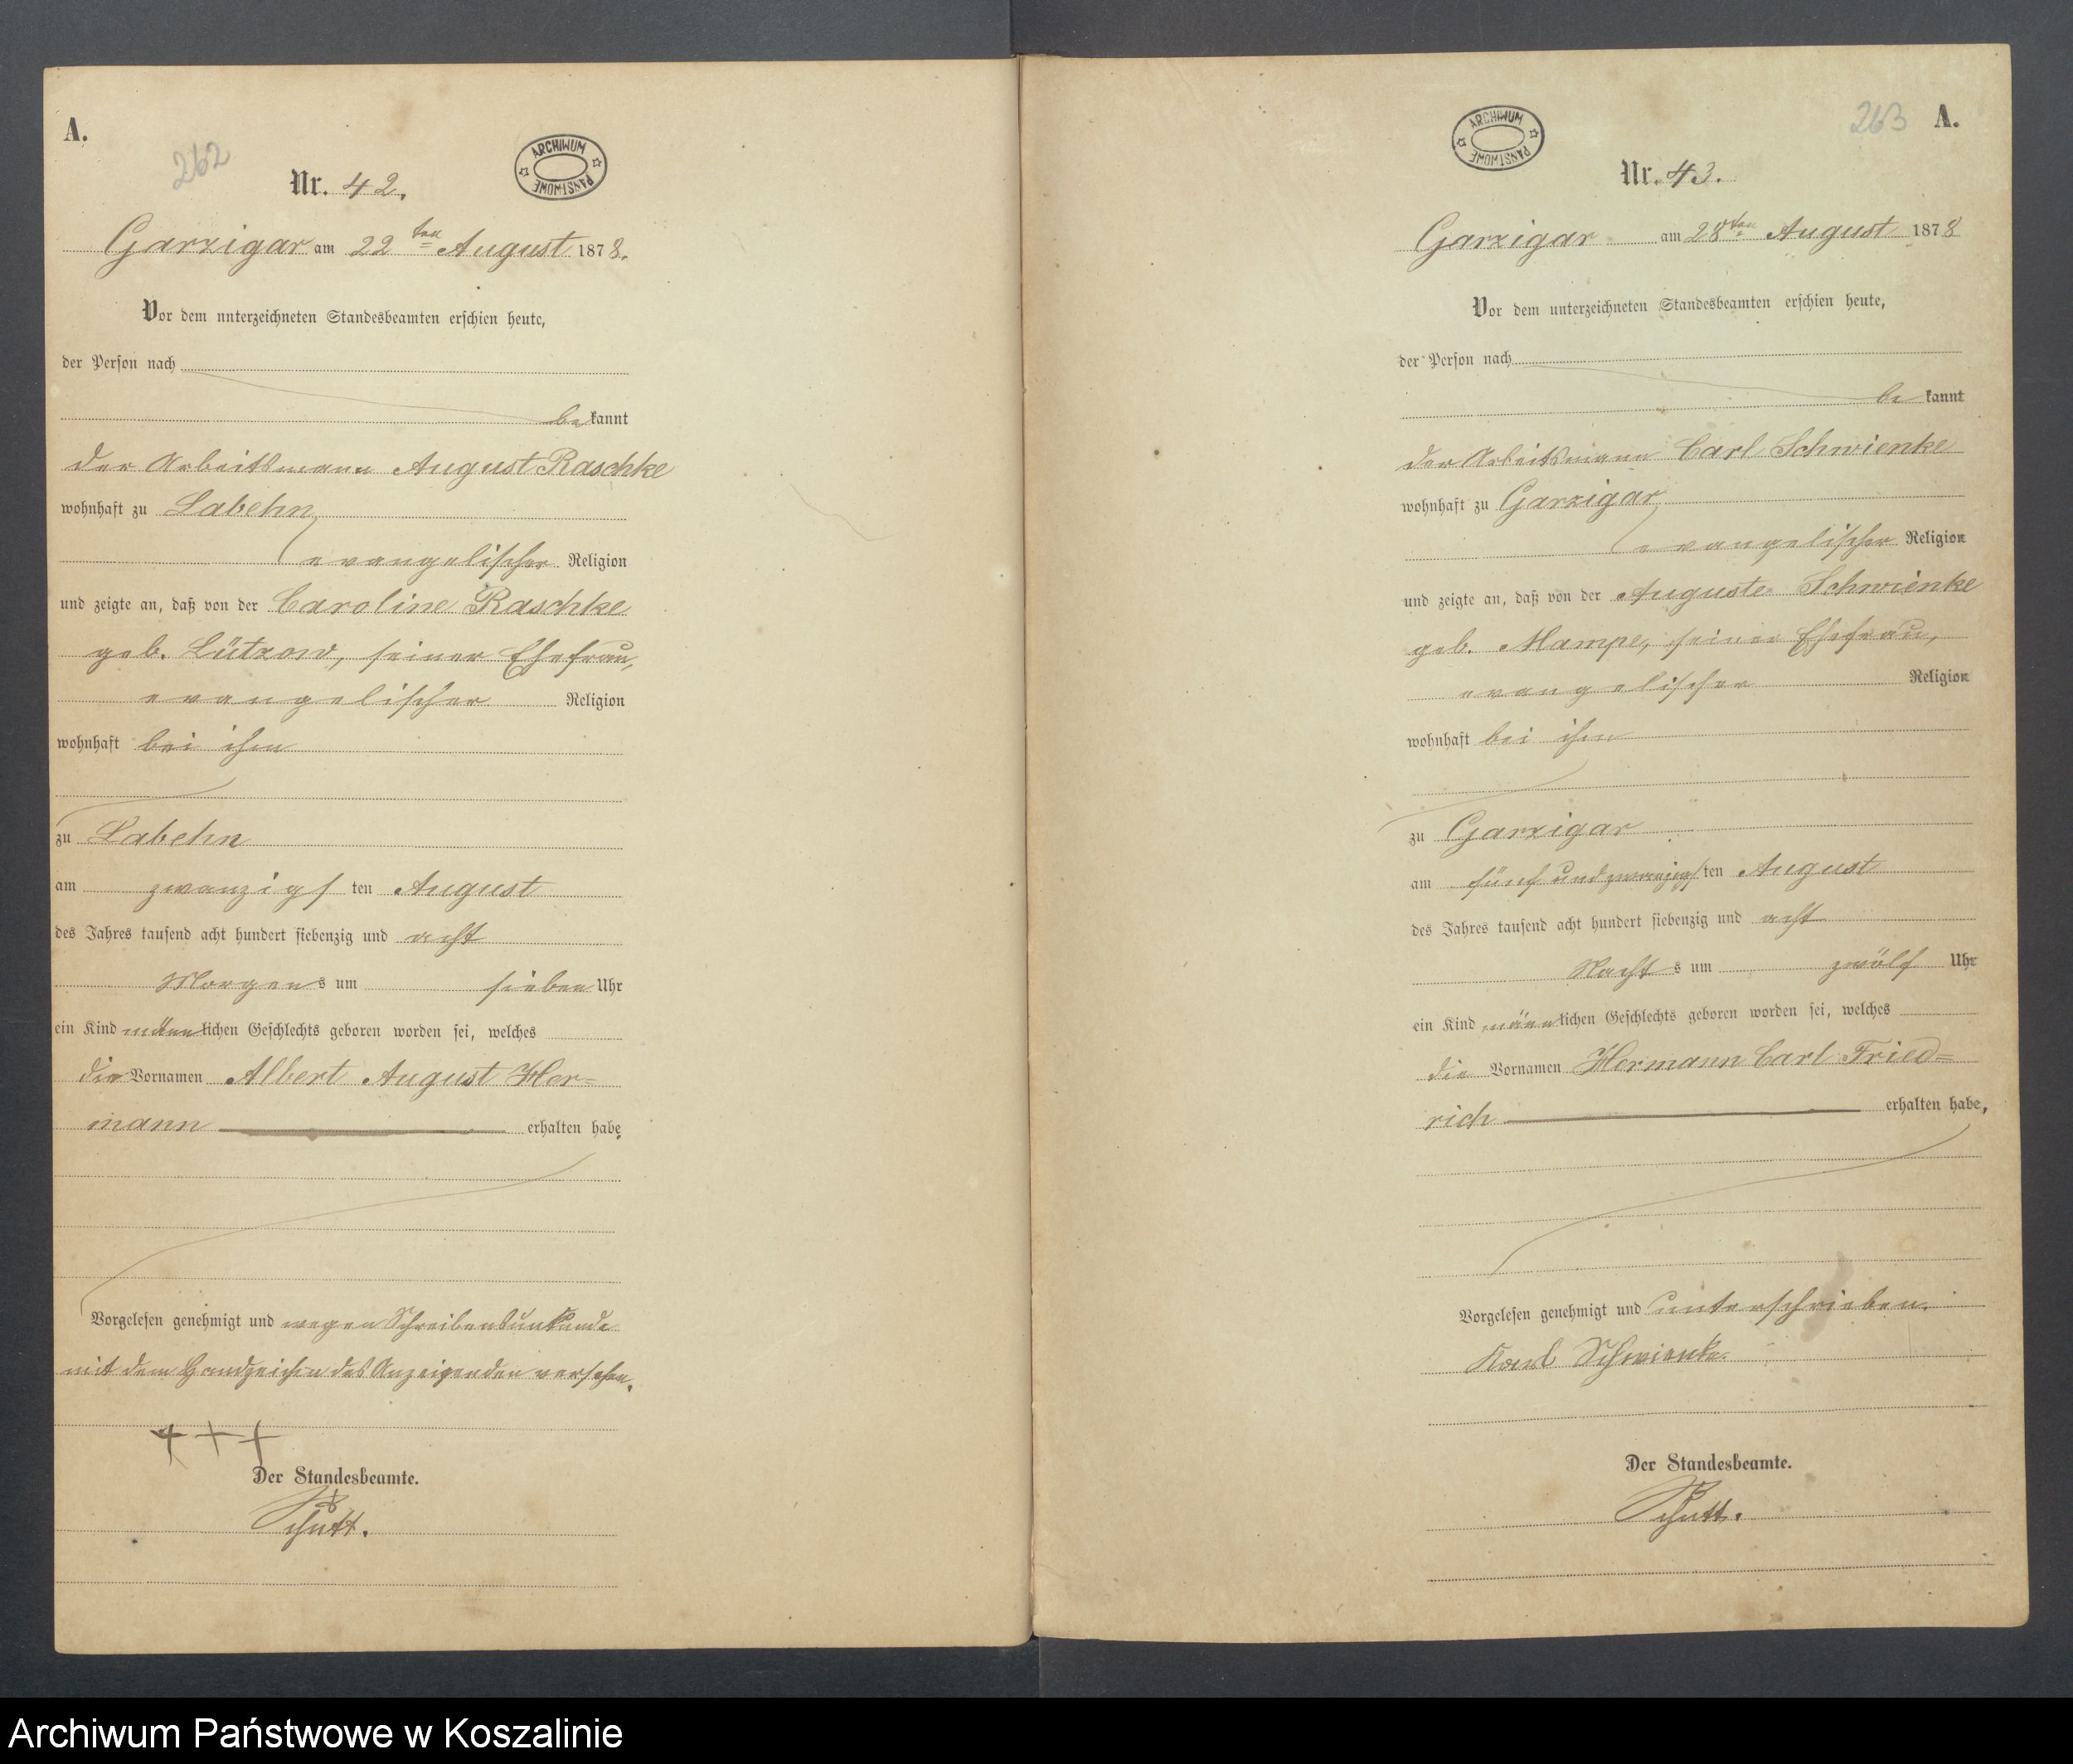 A.
262
Nr. 42.
ARCHIWUM PAŃSTWOWE
Garzigar am 22ten August 1878.
Vor dem unterzeichneten Standesbeamten erschien heute,
der Person nach
bekannt
der Arbeitsmann August Raschke
wohnhaft zu Labehn
evangelischer Religion
und zeigte an, daß von der Caroline Raschke
geb. Lützow, seiner Ehefrau,
evangelischer Religion
wohnhaft bei ihm
zu Labehn
am zwanzigsten August
des Jahres tausend acht hundert siebenzig und acht
Morgens um sieben Uhr
ein Kind männlichen Geschlechts geboren worden sei, welches
die Vornamen Albert August Her=
mann erhalten habe.
Vorgelesen genehmigt und wegen Schreibensunkunde
mit dem Handzeichen des Anzeigenden versehen.
+++
Der Standesbeamte.
Schutt.
ARCHIWUM PAŃSTWOWE
263
A.
Nr. 43.
Garzigar am 28ten August 1878
Vor dem unterzeichneten Standesbeamten erschien heute,
der Person nach
bekannt
der Arbeitsmann Carl Schwienke
wohnhaft zu Garzigar
evangelischer Religion
und zeigte an, daß von der Auguste Schwienke
geb. Mampe, seiner Ehefrau,
evangelischer Religion
wohnhaft bei ihm
zu Garzigar
am fünf und zwanzigsten August
des Jahres tausend acht hundert siebenzig und acht
Nachts um zwölf Uhr
ein Kind männlichen Geschlechts geboren worden sei, welches
die Vornamen Hermann Carl Fried=
rich erhalten habe,
Vorgelesen genehmigt und unterschrieben.
Karl Schwienke
Der Standesbeamte.
Schutt.
Archiwum Państwowe w Koszalinie